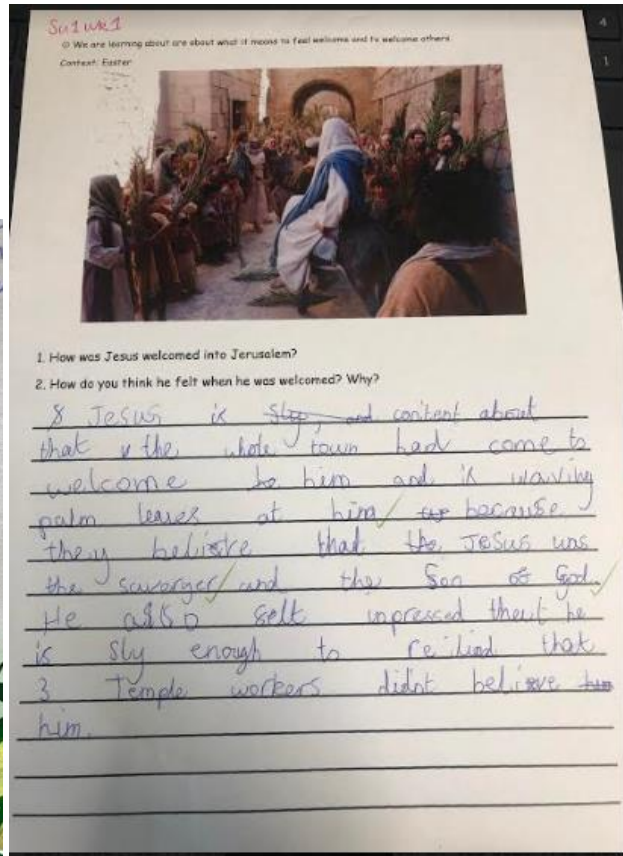 Su1 wk1
☺ We are learning about are about what it means to feel welcome and to welcome others.
Context: Easter
1. How was Jesus welcomed into Jerusalem?
2. How do you think he felt when he was welcomed? Why?
Jesus is and content about
that the whole town had come to
welcome him and is waving
palm leaves at him because
they believe that the Jesus was
the savoryer and the Son of God.
He also felt inpressed that he
is sly enough to relied that
3 Temple workers didnt believe
him.
4
1